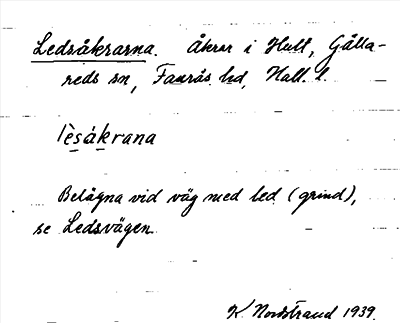 Ledsåkrarna. Åkrar i Hult, Gälla-
reds sn, Faurås hd, Hall. l.
lèsákrana
Belägna vid väg med led (grind),
se Ledsvägen.
K. Nordstrand 1939.